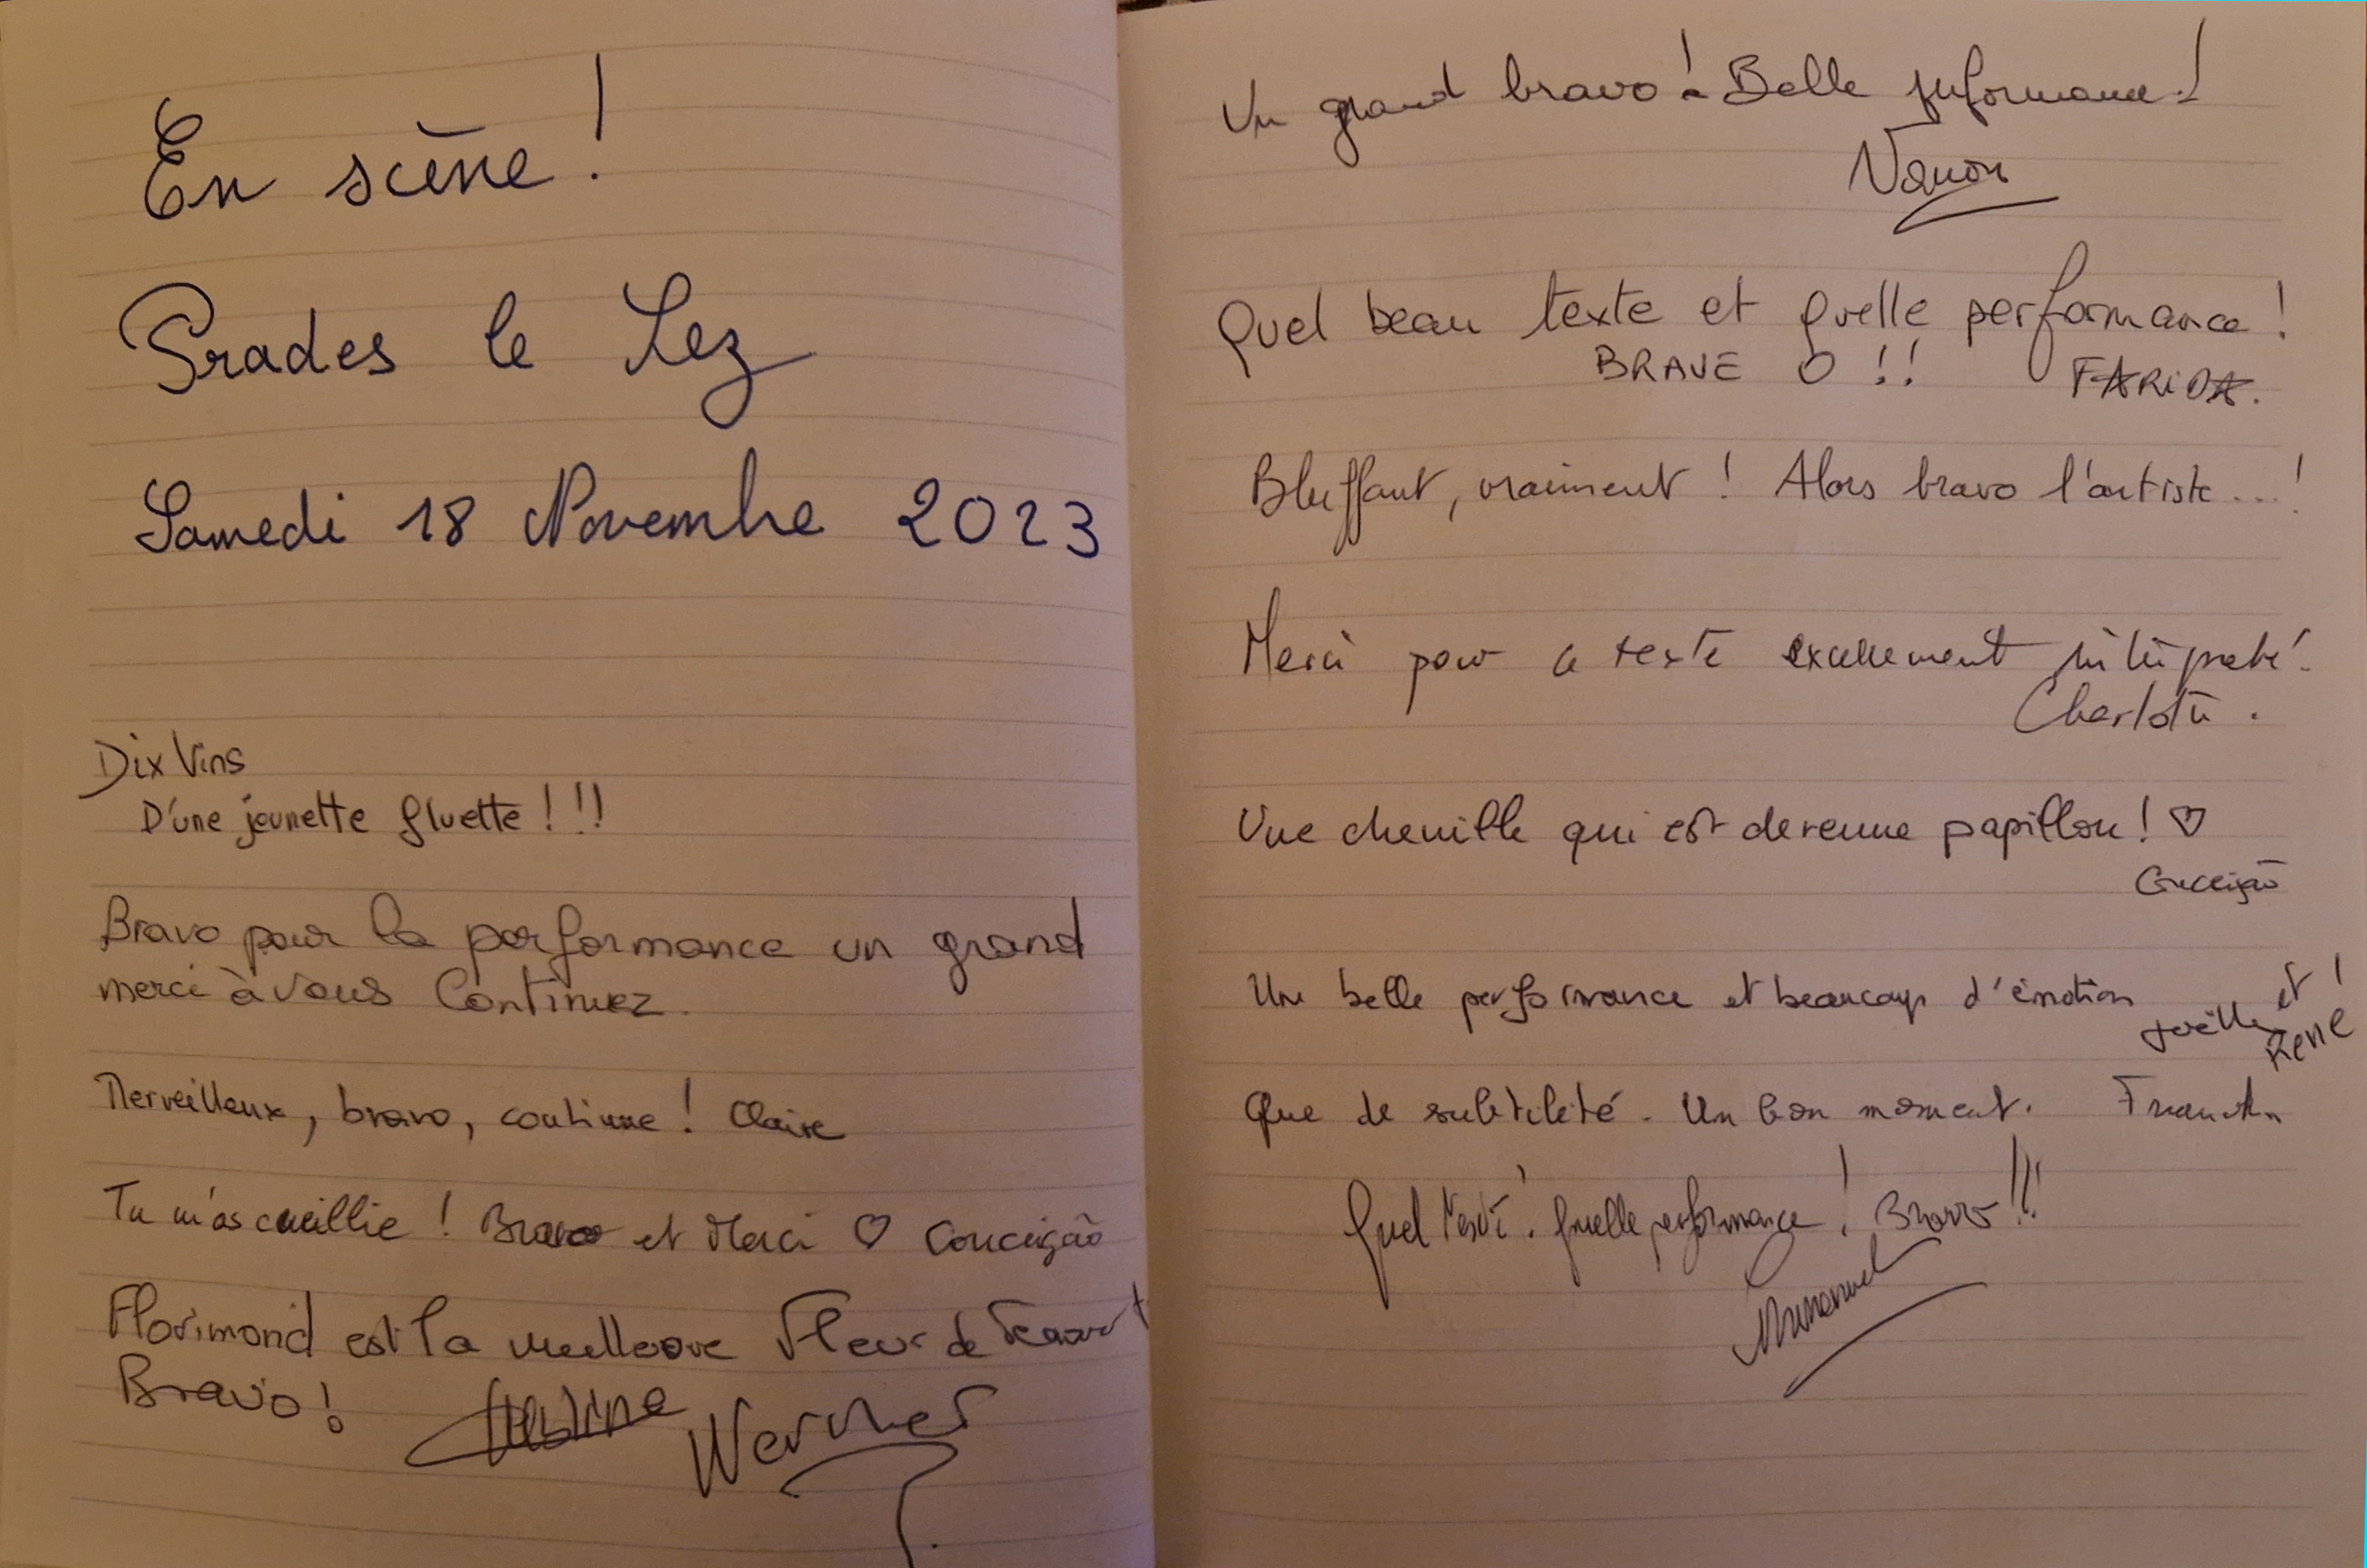 En scène !
Prades le Lez
Samedi 18 Novembre 2023
Dix Vins
D'une jeunette fluette ! !!
Bravo pour la performance un grand
merci à vous Continuez.
Merveilleux, bravo, continue ! Claire
Tu m'as cueillie ! Bravo et Merci ♡ Conceição
Florimond est la meilleure Fleur de
Bravo !
Werner
Un grand bravo ! Belle performance !
Nanon
Quel beau texte et quelle performance !
BRAVE O !! FARIDA.
Bluffant, vraiment ! Alors bravo l'artiste...!
Merci pour ce texte excellement interpreté.
Charlotte.
Une chenille qui est devenue papillon ! ♡
Conceição
Une belle performance et beaucoup d'émotion !
Joëlle et
René
Que de subtilité. Un bon moment.
Quel texte ! Quelle performance ! Bravo !!!
Emmanuel